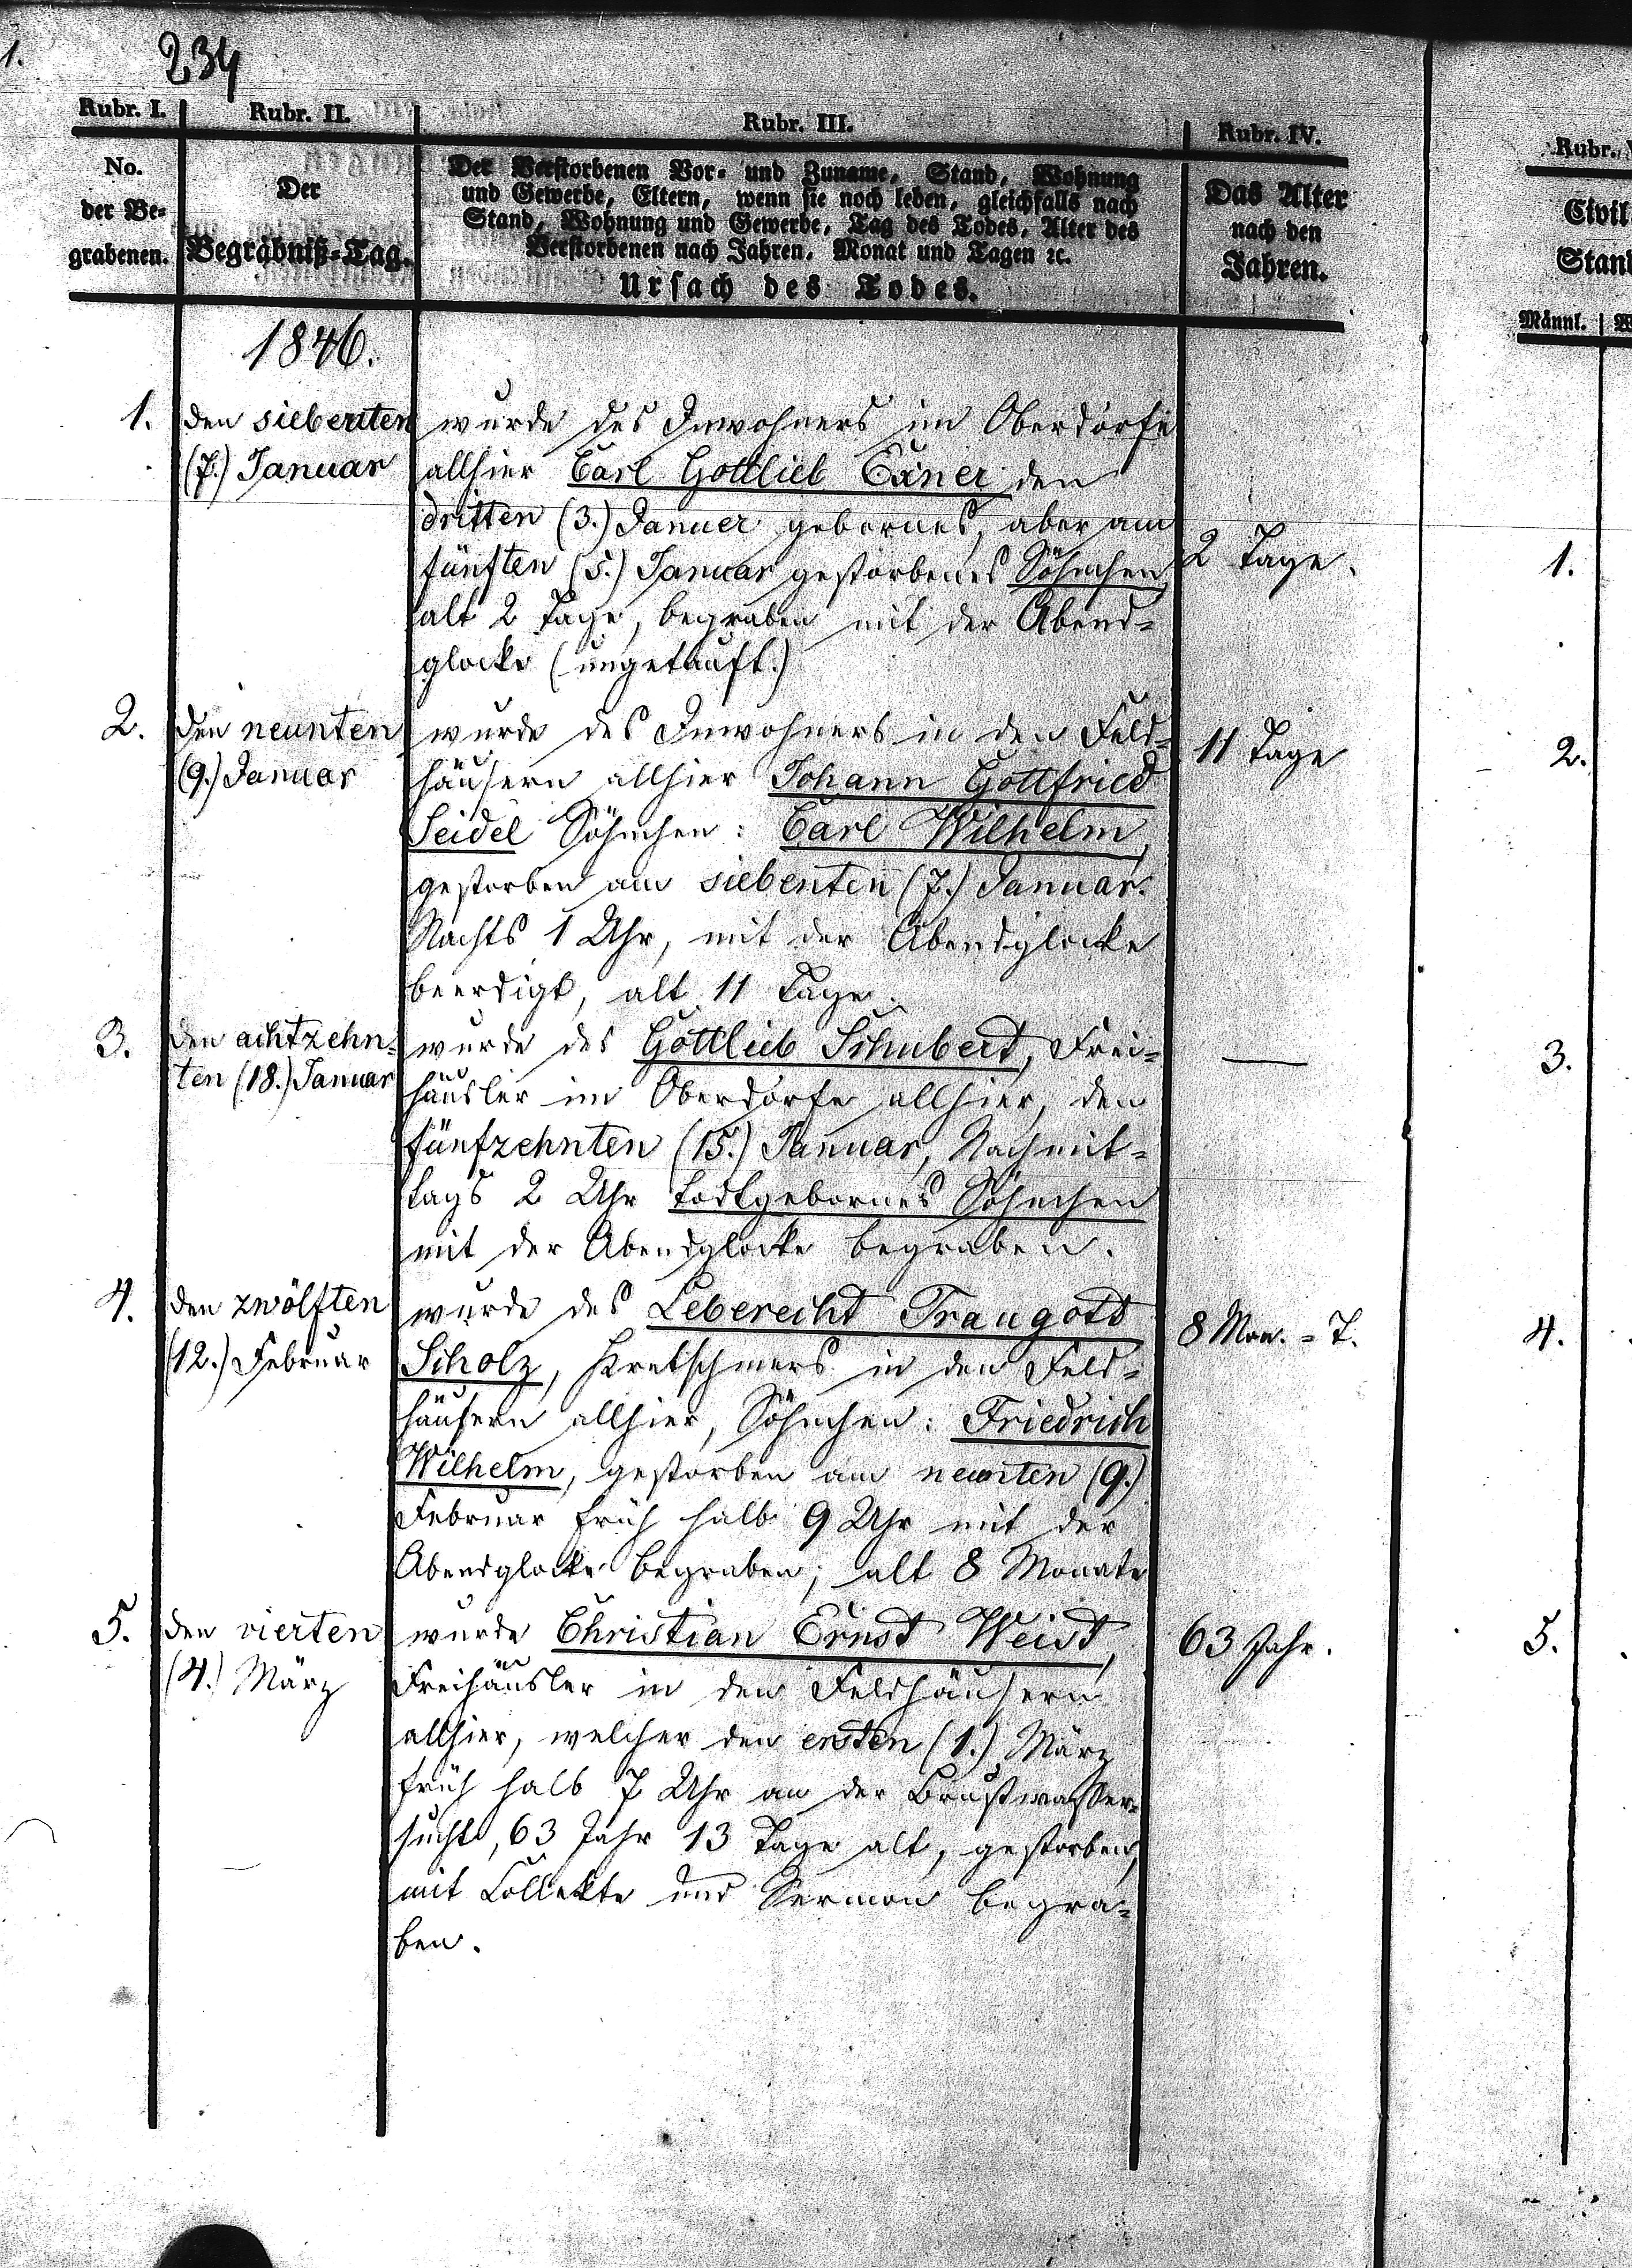 1.
234
Rubr. I. Rubr. II. Rubr. III. Rubr. IV. Rubr.
No. der Be- grabenen.
Der Begräbniß-Tag.
Der Verstorbenen Vor- und Zuname, Stand, Wohnung
und Gewerbe, Eltern, wenn sie noch leben, gleichfalls nach
Stand, Wohnung und Gewerbe, Tag des Todes, Alter des
Verstorbenen nach Jahren, Monat und Tagen ꝛc.
Ursach des Todes.
Das Alter
nach den
Jahren.
Civil-
Stand
Männl.
1846.
1. den siebenten
(7.) Januar
wurde des Inwohners im Oberdorfe
allhier Carl Gottlieb Exner den
dritten (3.) Januer gebornes, aber am
fünften (5.) Januar gestorbenes Söhnchen
alt 2 Tage, begraben mit der Abend-
glocke (ungetauft.)
2 Tage.
1.
2. den neunten
(9.) Januar
wurde des Inwohners in den Feld-
häusern allhier Johann Gottfried
Seidel Söhnchen: Carl Wilhelm,
gestorben am siebenten (7.) Januar.
Nachts 1 Uhr, mit der Abendglocke
beerdigt, alt 11 Tage.
11 Tage
2.
3. den achtzehn-
ten (18.) Januar
wurde des Gottlieb Schubert, Frei-
häusler im Oberdorfe allhier, den
fünfzehnten (15.) Januar, Nachmit-
tags 2 Uhr todtgebornes Söhnchen
mit der Abendglocke begraben.
—
3.
4. den zwölften
(12.) Februar
wurde des Leberecht Traugott
Scholz, Kretschmers in den Feld-
häusern allhier, Söhnchen: Friedrich
Wilhelm, gestorben am neunten (9.)
Februar früh halb 9 Uhr mit der
Abendglocke begraben; alt 8 Monate
8 Mon. - T.
4.
5. den vierten
(4.) März
wurde Christian Ernst Weist,
Freihäusler in den Feldhäusern
allhier, welcher den ersten (1.) März
früh halb 7 Uhr an der Brustwasser-
sucht, 63 Jahr 13 Tage alt, gestorben,
mit Collekte und Sermon begra-
ben.
63 Jahr.
5.